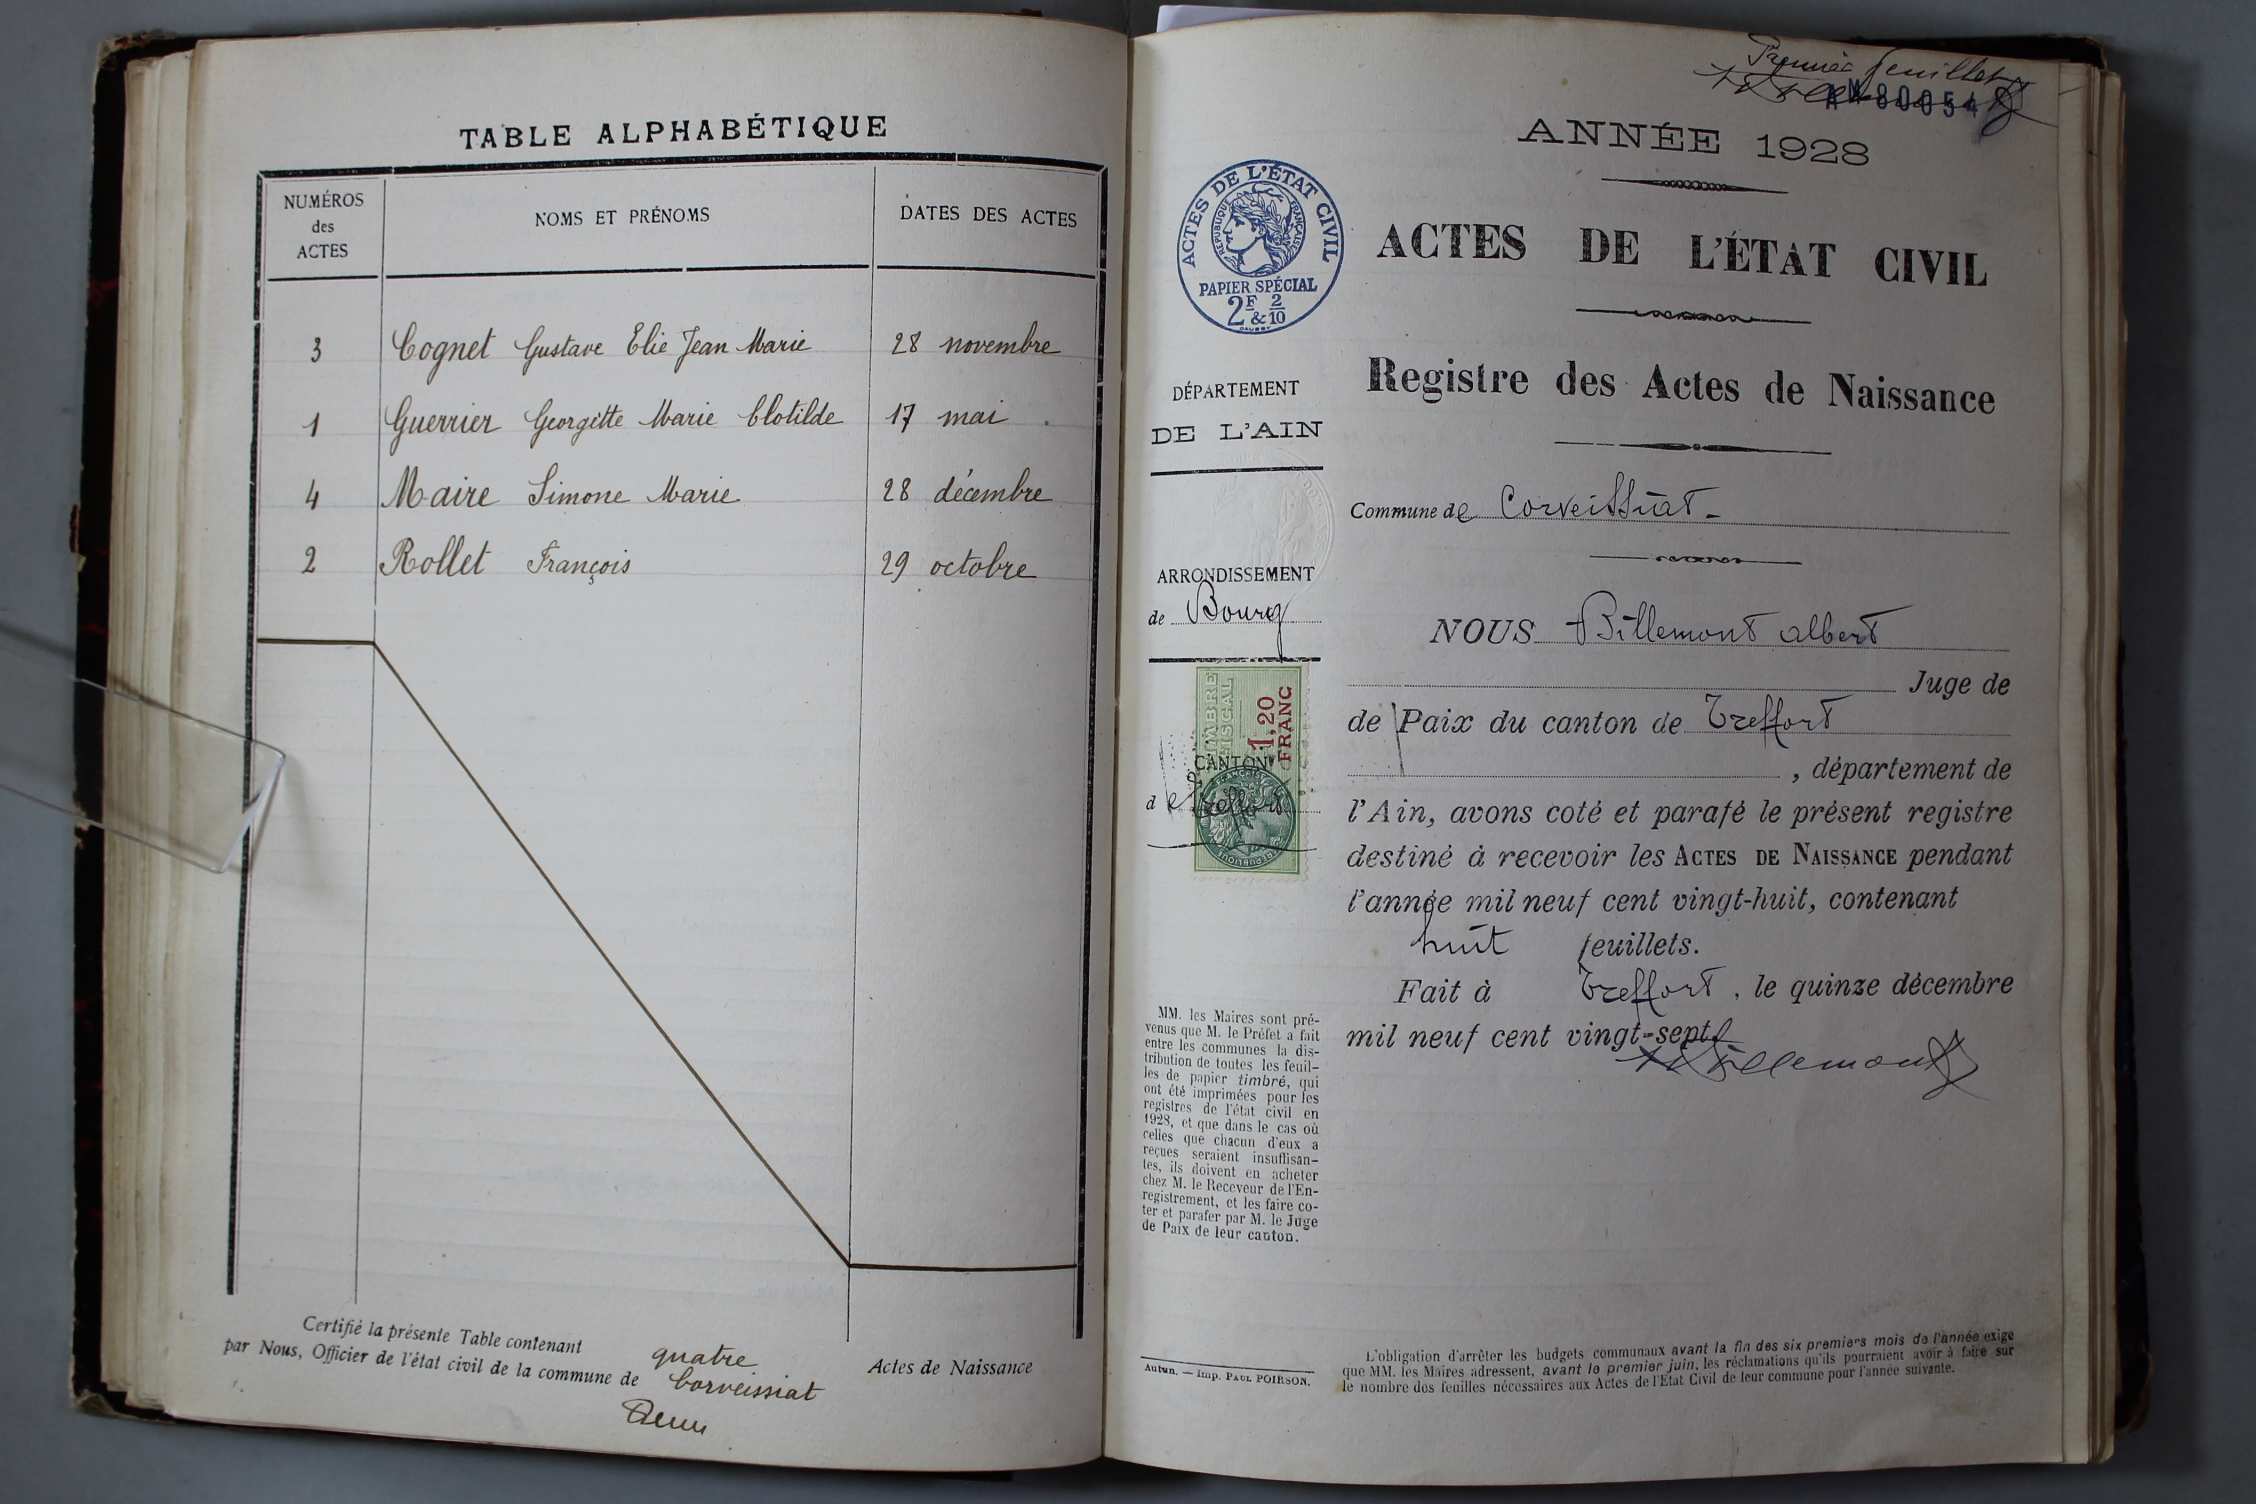 TABLE ALPHABÉTIQUE
NUMÉROS des ACTES
NOMS ET PRÉNOMS
DATES DES ACTES
3 Cognet Gustave Elie Jean Marie 28 novembre
1 Guerrier Georgette Marie Clotilde 17 mai
4 Maire Simone Marie 28 décembre
2 Rollet François 29 octobre
Certifié la présente Table contenant quatre Actes de Naissance
par Nous, Officier de l'état civil de la commune de Corveissiat
Premier feuillet
ANNÉE 1928
ACTES DE L'ÉTAT CIVIL
RÉPUBLIQUE FRANÇAISE
PAPIER SPÉCIAL
2F & 2/10
ACTES DE L'ÉTAT CIVIL
Registre des Actes de Naissance
DÉPARTEMENT
DE L'AIN
ARRONDISSEMENT
de Bourg
TIMBRE FISCAL
1,20 FRANC
CANTON
de Treffort
MM. les Maires sont pré-
venus que M. le Préfet a fait
entre les communes la dis-
tribution de toutes les feuil-
les de papier timbré, qui
ont été imprimées pour les
registres de l'état civil en
1928, et que dans le cas où
celles que chacun d'eux a
reçues seraient insuffisan-
tes, ils doivent en acheter
chez M. le Receveur de l'En-
registrement, et les faire co-
ter et parafer par M. le Juge
de Paix de leur canton.
Autun. — Imp. PAUL POIRSON.
Commune de Corveissiat
NOUS Billemont Albert
Juge de
de Paix du canton de Treffort
, département de
l'Ain, avons coté et parafé le présent registre
destiné à recevoir les ACTES DE NAISSANCE pendant
l'année mil neuf cent vingt-huit, contenant
huit feuillets.
Fait à Treffort, le quinze décembre
mil neuf cent vingt-sept
Billemont
L'obligation d'arrêter les budgets communaux avant la fin des six premiers mois de l'année exige
que MM. les Maires adressent, avant le premier juin, les réclamations qu'ils pourraient avoir à faire sur
le nombre des feuilles nécessaires aux Actes de l'Etat Civil de leur commune pour l'année suivante.